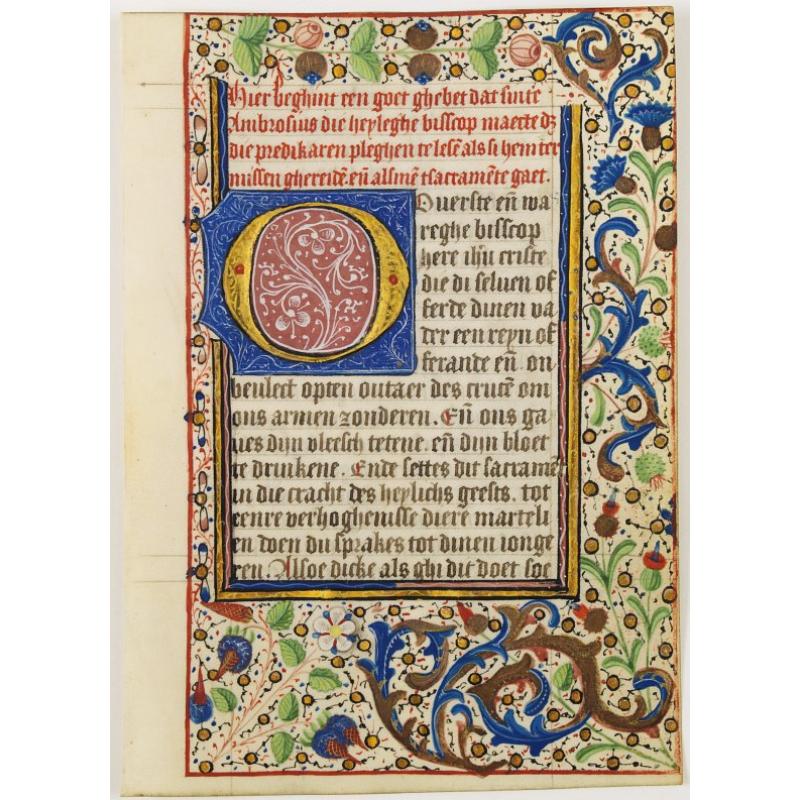 Hier beghint een goet ghebet dat sinte
Ambrosius die heyleghe bisscop maecte dz
die predikaren pleghen te lesē als si hem ter
missen ghereidē eñ alsmē tsacramēte gaet.
Ouerste eñ wa
reghe bisscop
here ihū criste
die di seluen of
ferde dinen va
der een reyn of
ferande eñ on
beulect opten outaer des crucē om
ons armen zonderen. Eñ ons ga
ues dijn vleesch tetene. eñ dijn bloet
te drinkene. Ende settes dit sacramēt
in die cracht des heylichs geests. tot
eenre verhoghenisse diere marteli
en doen du sprakes tot dinen ionge
ren. Alsoe dicke als ghi dit doet soe